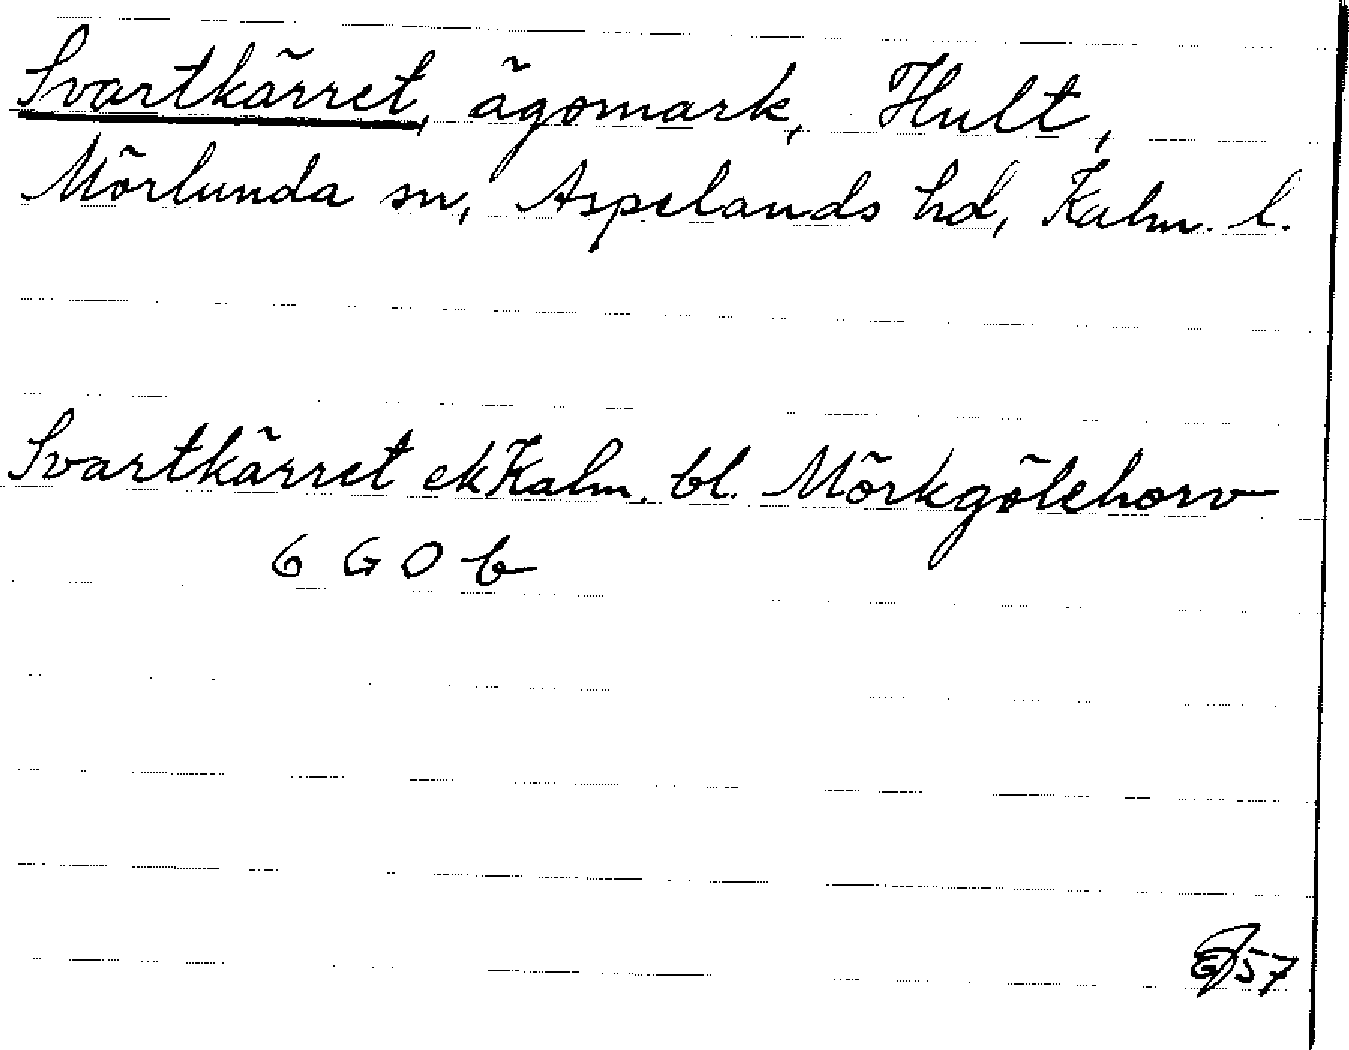 Svartkärret, ägomark, Hult,
Mörlunda sn, Aspelands hd, Kalm. l.
Svartkärret ek Kalm. bl. Mörkgölehorv
6 G O b
57